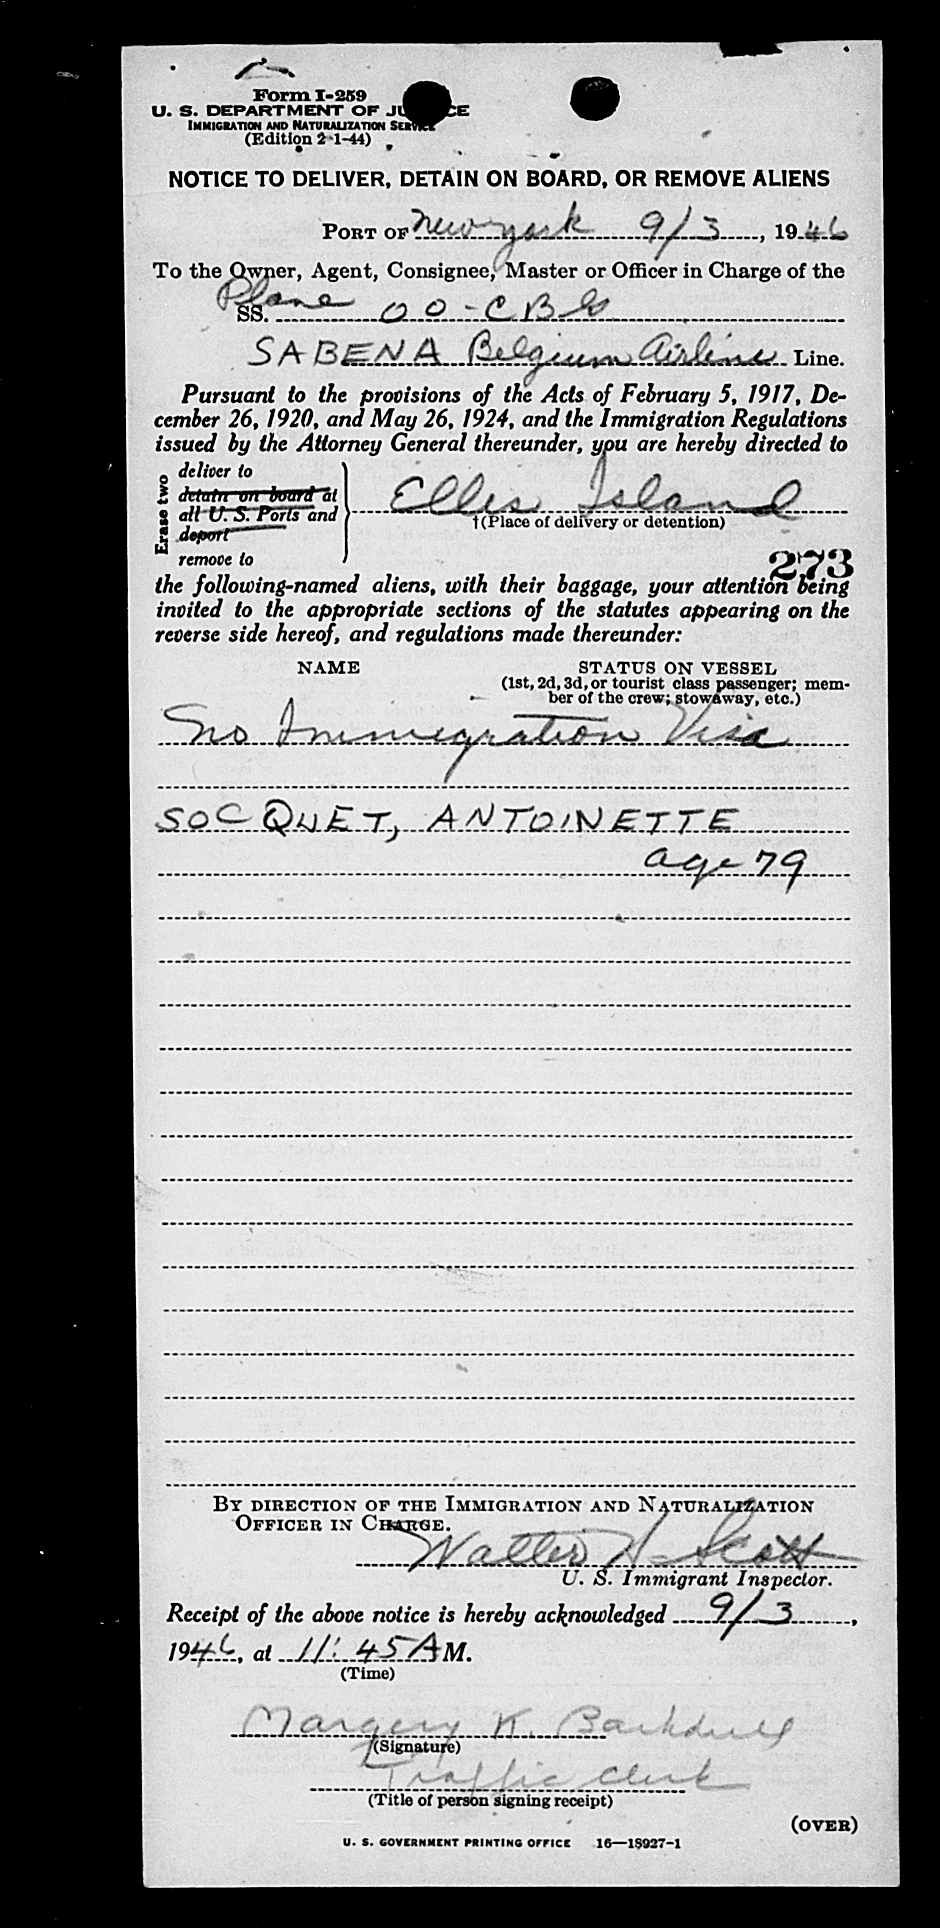 Form I-259
U. S. DEPARTMENT OF JUSTICE
IMMIGRATION AND NATURALIZATION SERVICE
(Edition 2-1-44)
NOTICE TO DELIVER, DETAIN ON BOARD, OR REMOVE ALIENS
PORT OF New York 9/3, 1946
To the Owner, Agent, Consignee, Master or Officer in Charge of the
Plane
SS. OO-CBG
SABENA Belgium Airline Line.
Pursuant to the provisions of the Acts of February 5, 1917, De-
cember 26, 1920, and May 26, 1924, and the Immigration Regulations
issued by the Attorney General thereunder, you are hereby directed to
Erase two
deliver to
detain on board at
all U. S. Ports and
deport
remove to
Ellis Island
†(Place of delivery or detention)
273
the following-named aliens, with their baggage, your attention being
invited to the appropriate sections of the statutes appearing on the
reverse side hereof, and regulations made thereunder:
NAME STATUS ON VESSEL
(1st, 2d, 3d, or tourist class passenger; mem-
ber of the crew; stowaway, etc.)
No Immigration Visa
SOCQUET, ANTOINETTE
age 79
BY DIRECTION OF THE IMMIGRATION AND NATURALIZATION
OFFICER IN CHARGE.
Walter Scott
U. S. Immigrant Inspector.
Receipt of the above notice is hereby acknowledged 9/3,
1946, at 11:45 A M.
(Time)
Margery K.
(Signature)
Traffic Clerk
(Title of person signing receipt)
(OVER)
U. S. GOVERNMENT PRINTING OFFICE 16—18927-1